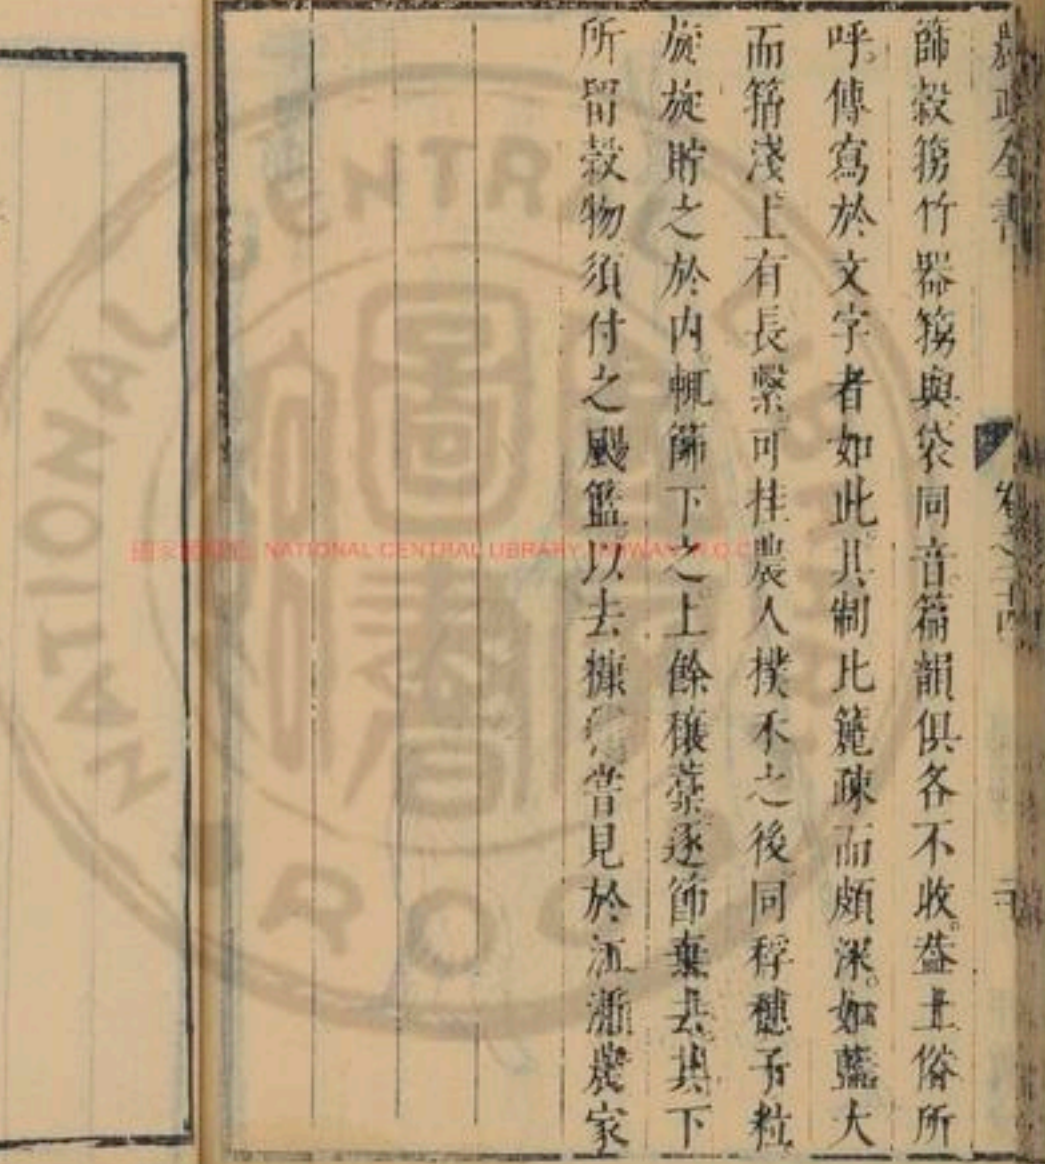 農政全書 卷之二十四 二十
篩穀箉竹器箉與袋同音篇韻俱各不收。蓋土俗所
呼。傳寫於文字者如此。其制比疎而頗深。如籃大
而稍淺上有長繫可挂農人撲禾之後同稃穗子粒
旋旋貯之於內輒篩下之。上餘穰藁逐節棄去其下
所留穀物須付之颺籃以去糠嘗見於江浙農家
國家圖書館 NATIONAL CENTRAL LIBRARY, TAIWAN, R.O.C
NATIONAL CENTRAL L R.O.C